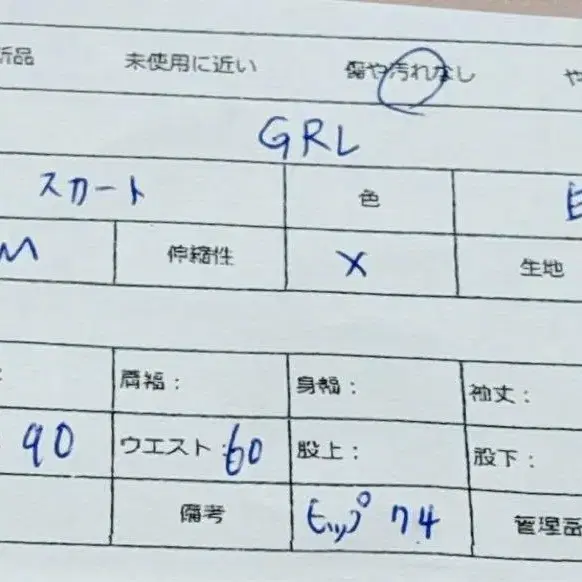 新品 未使用に近い 傷や汚れなし や
GRL
スカート 色
M 伸縮性 X 生地
肩幅: 身幅: 袖丈:
90 ウエスト: 60 股上: 股下:
備考 ヒップ 74 管理品